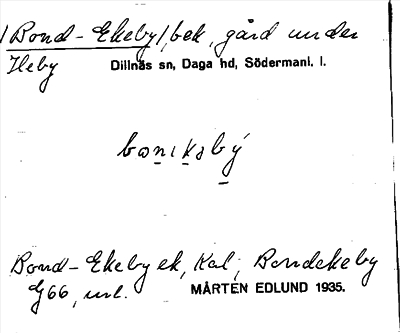 /Bond-Ekeby/, bek, gård under
Ileby Dillnäs sn, Daga hd, Södermanl. l.
bonıksbý
Bond-Ekeby ek, Kal, Bondekeby
G66, unl. MÅRTEN EDLUND 1935.